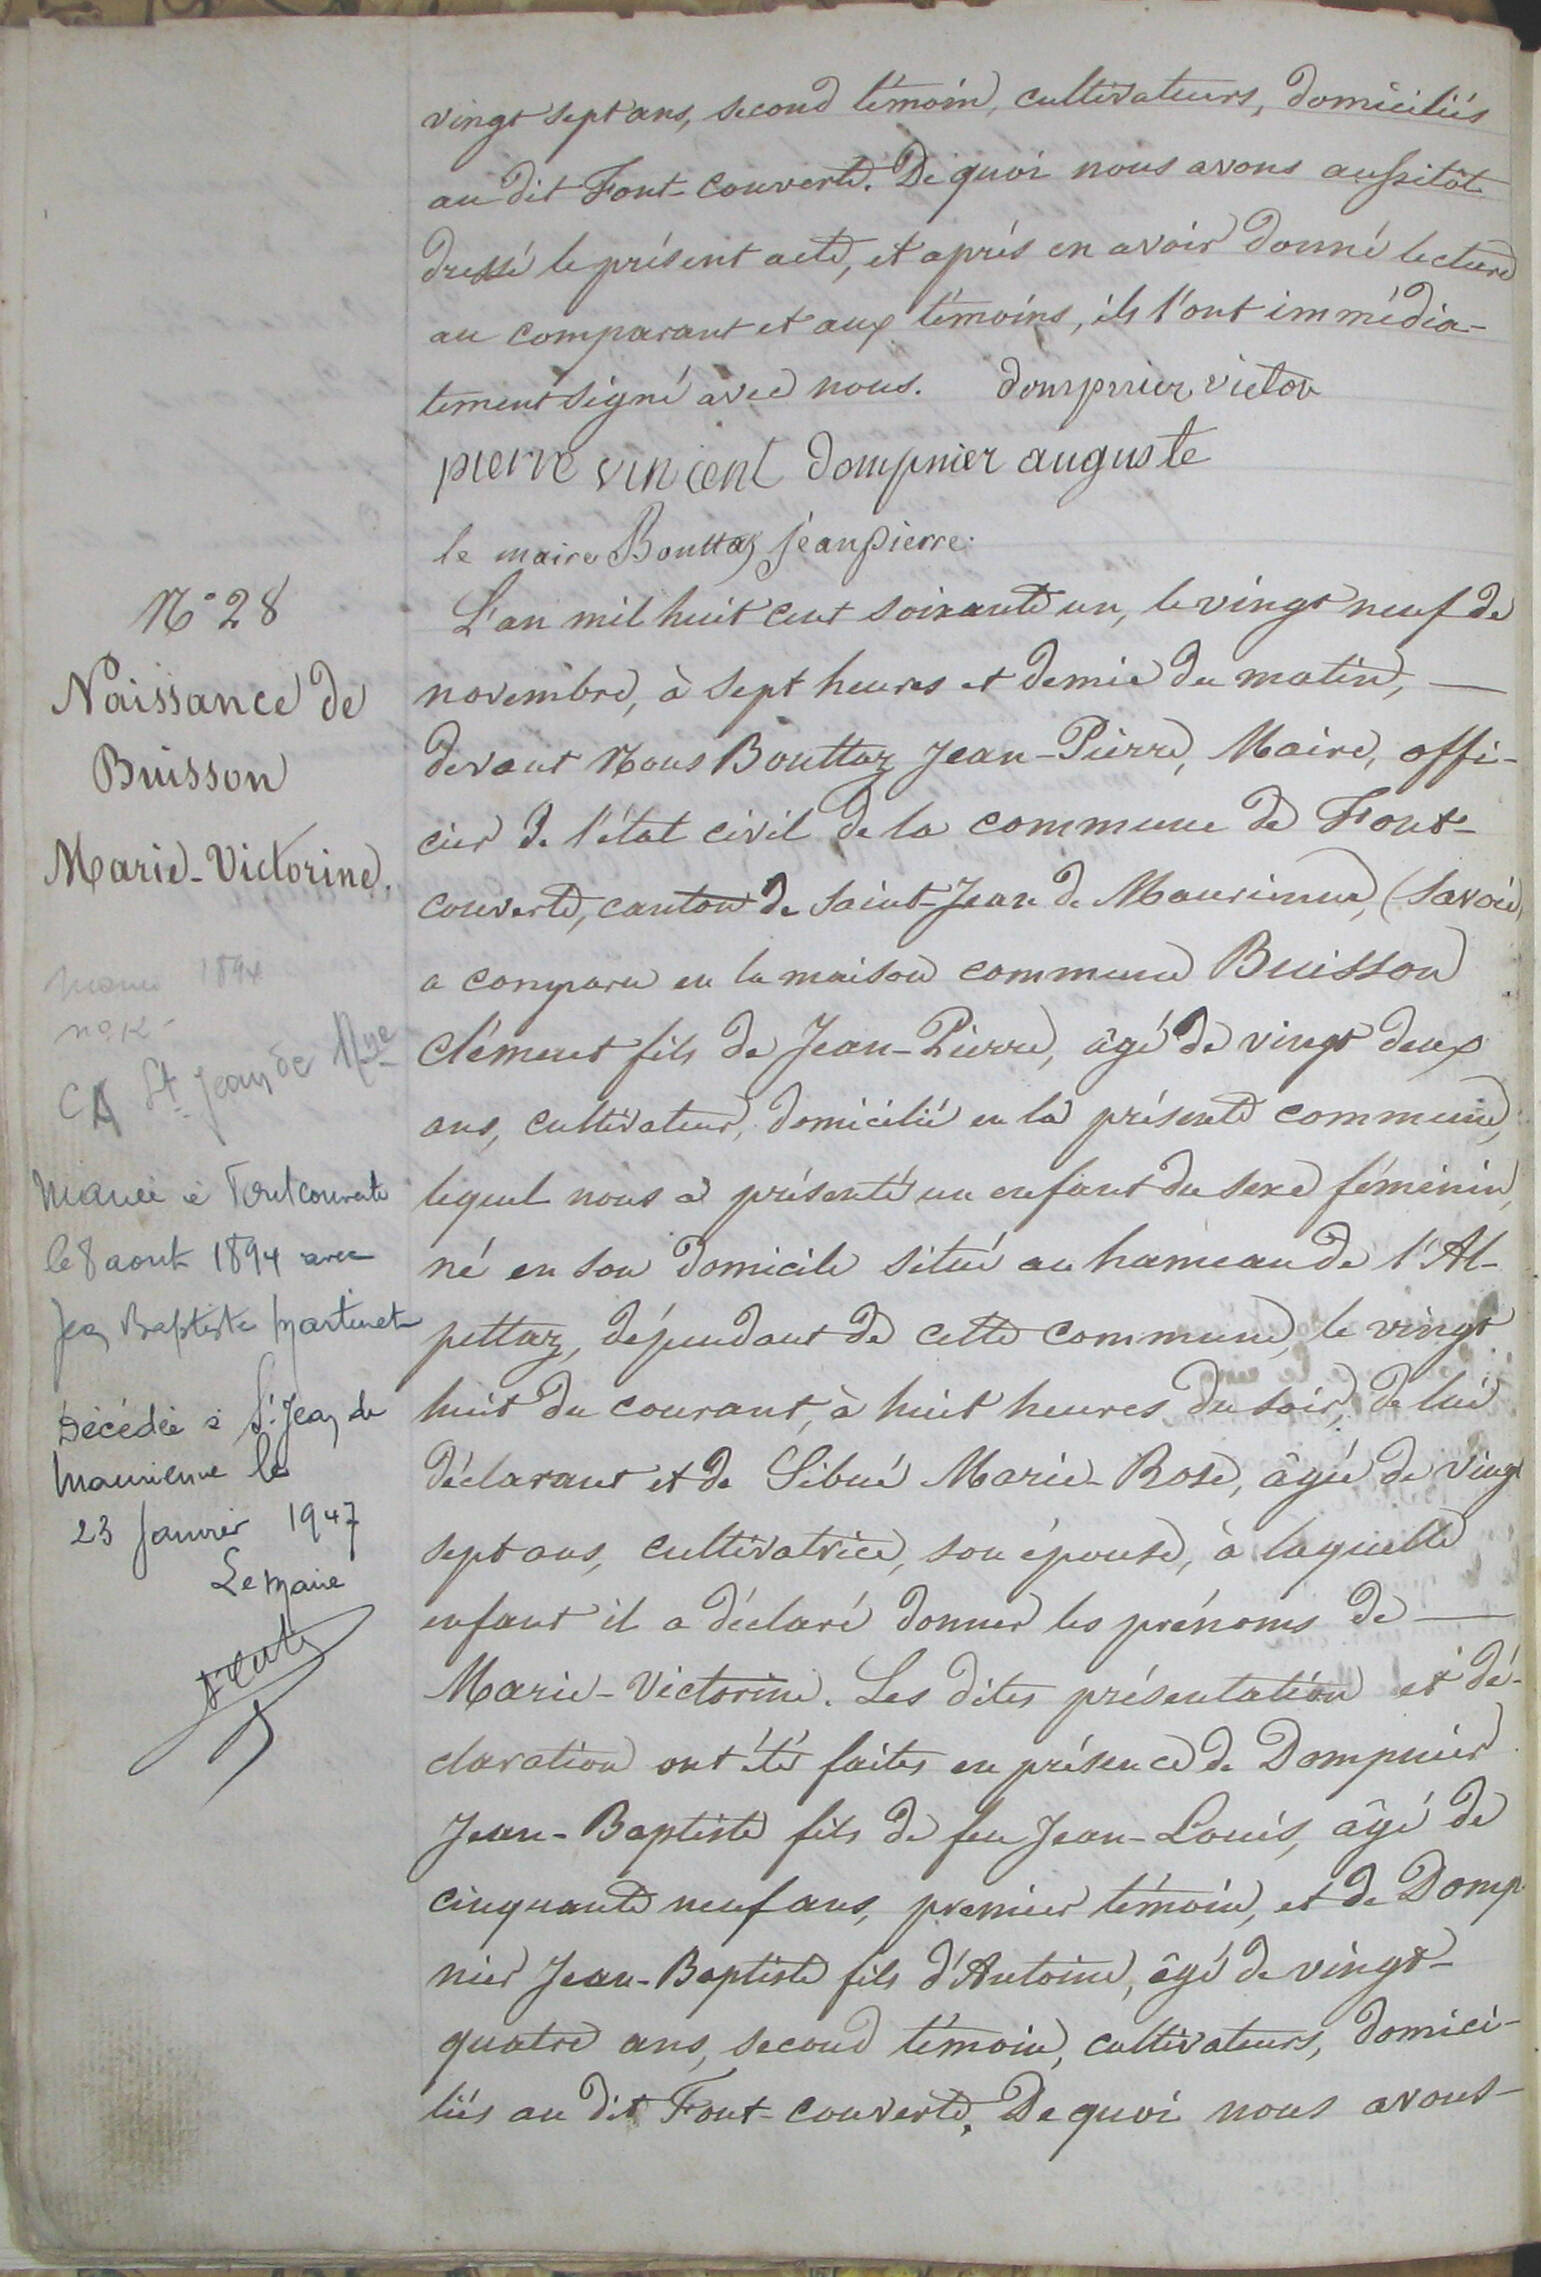 vingt sept ans, second témoin, cultivateurs, domiciliés
au dit Font-couverte. De quoi nous avons aussitôt
dressé le présent acte, et après en avoir donné lecture
au comparant et aux témoins, ils l'ont immédia-
tement signé avec nous. dompnier victor
pierre vincent dompnier auguste
le maire Bouttaz jeanpierre.
N° 28
Naissance de
Buisson
Marie-Victorine.
1894
St Jean de Mne
Mariée à Fontcouverte
le 8 aout 1894 avec
Jean Baptiste Martinet
Décédée à St Jean de
Maurienne le
23 Janvier 1947
Le Maire
L'an mil huit cent soixante un, le vingt neuf de
novembre, à sept heures et demie du matin, —
devant Nous Bouttaz Jean-Pierre, Maire, offi-
cier de l'état civil de la commune de Font-
couverte, canton de Saint-Jean de Maurienne, (Savoie)
a comparu en la maison commune Buisson
Clément fils de Jean-Pierre, âgé de vingt deux
ans, cultivateur, domicilié en la présente commune,
lequel nous a présenté un enfant du sexe féminin,
né en son domicile situé au hameau de l'Al-
pettaz, dépendant de cette commune, le vingt
huit du courant, à huit heures du soir, de lui
déclarant et de Sibué Marie-Rose, âgée de vingt
sept ans, cultivatrice, son épouse, à laquelle
enfant il a déclaré donner les prénoms de —
Marie-Victorine. Les dites présentation et dé-
claration ont été faites en présence de Dompnier
Jean-Baptiste fils de feu Jean-Louis, âgé de
cinquante neuf ans, premier témoin, et de Domp-
nier Jean-Baptiste fils d'Antoine, âgé de vingt-
quatre ans, second témoin, cultivateurs, domici-
liés au dit Font-couverte. De quoi nous avons-